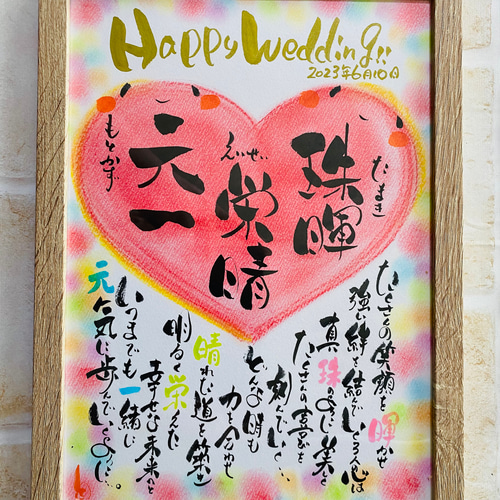 Happy Wedding!!
2023年6月10日
たまき
珠暉
えいせい
栄晴
もとかず
元一
たくさんの笑顔を暉かせ
強い絆を結んでいく心は
真珠のように美しく
たくさんの喜びを
刻んでいく…
どんな時も
力を合わせ
晴れた道を築き
明るく栄えた
幸せな未来へと
いつまでも一緒に
元気に歩んでいくように…